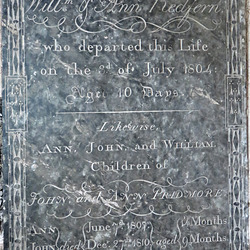 Willm & Ann Redfern,
who departed this Life
on the 3d of July 1804:
Aged 10 Days.
Likewise,
ANN, JOHN, and WILLIAM,
Children of
JOHN, and ANN PRIDMORE
ANN June 1807 Months.
JOHN died Dec. 27th 1810, aged 9 Months.